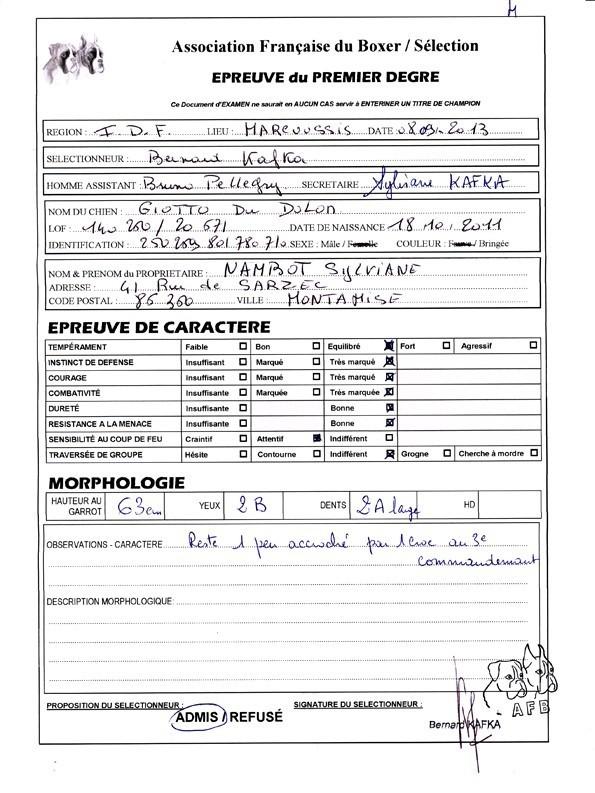 M
Association Française du Boxer / Sélection
EPREUVE du PREMIER DEGRE
Ce Document d'EXAMEN ne saurait en AUCUN CAS servir à ENTERINER UN TITRE DE CHAMPION
REGION : I.D.F. LIEU : MARCOUSSIS DATE 08.09.2013
SELECTIONNEUR : Bernard Kafka
HOMME ASSISTANT : Bruno Pellegry SECRETAIRE Sylviane KAFKA
NOM DU CHIEN : GIOTTO Du DOLON
LOF : 140 250 / 20 671 DATE DE NAISSANCE 18.10.2011
IDENTIFICATION : 250 269 801 780 710 SEXE : Mâle / Femelle COULEUR : Fauve / Bringée
NOM & PRENOM du PROPRIETAIRE : NAMBOT SYLVIANE
ADRESSE : 41 Rue de SARZEC
CODE POSTAL : 86 360 VILLE : MONTAMISE
EPREUVE DE CARACTERE
TEMPÉRAMENT Faible Bon Equilibré Fort Agressif
INSTINCT DE DEFENSE Insuffisant Marqué Très marqué
COURAGE Insuffisant Marqué Très marqué
COMBATIVITÉ Insuffisante Marquée Très marquée
DURETÉ Insuffisante Bonne
RESISTANCE A LA MENACE Insuffisante Bonne
SENSIBILITÉ AU COUP DE FEU Craintif Attentif Indifférent
TRAVERSÉE DE GROUPE Hésite Contourne Indifférent Grogne Cherche à mordre
MORPHOLOGIE
HAUTEUR AU GARROT 63cm YEUX 2B DENTS 2A large HD
OBSERVATIONS - CARACTERE Reste 1 peu accroché par 1 croc au 3e
commandemant
DESCRIPTION MORPHOLOGIQUE:
PROPOSITION DU SELECTIONNEUR : SIGNATURE DU SELECTIONNEUR :
ADMIS / REFUSÉ
Bernard KAFKA
AFB